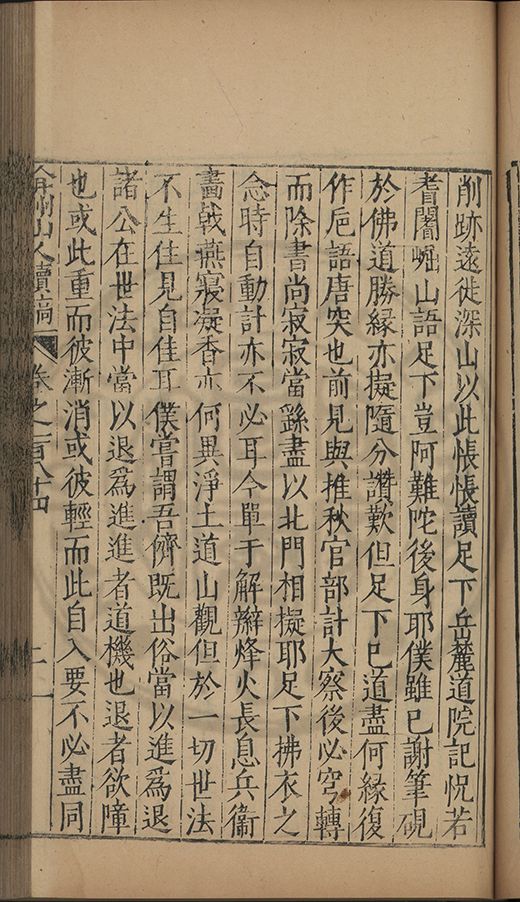 削跡遠徙深山以此悵悵讀足下岳麓道院記怳若
耆闍崛山語足下豈阿難咜後身耶僕雖已謝筆硯
於佛道勝縁亦擬隨分讚歎但足下已道盡何緣復
作卮語唐突也前見與推秋官部計大察後必穹轉
而除書尚寂寂當繇盡以北門相擬耶足下拂衣之
念時自動計亦不必耳今單于解辮烽火長息兵衞
畵戟燕寢凝香亦何異淨土道山觀但於一切世法
不生佳見自佳耳僕嘗謂吾儕既出俗當以進爲退
諸公在世法中當以退爲進進者道機也退者欲障
也或此重而彼漸消或彼輕而此自入要不必盡同
弇州山人續稿 卷之一百八十四